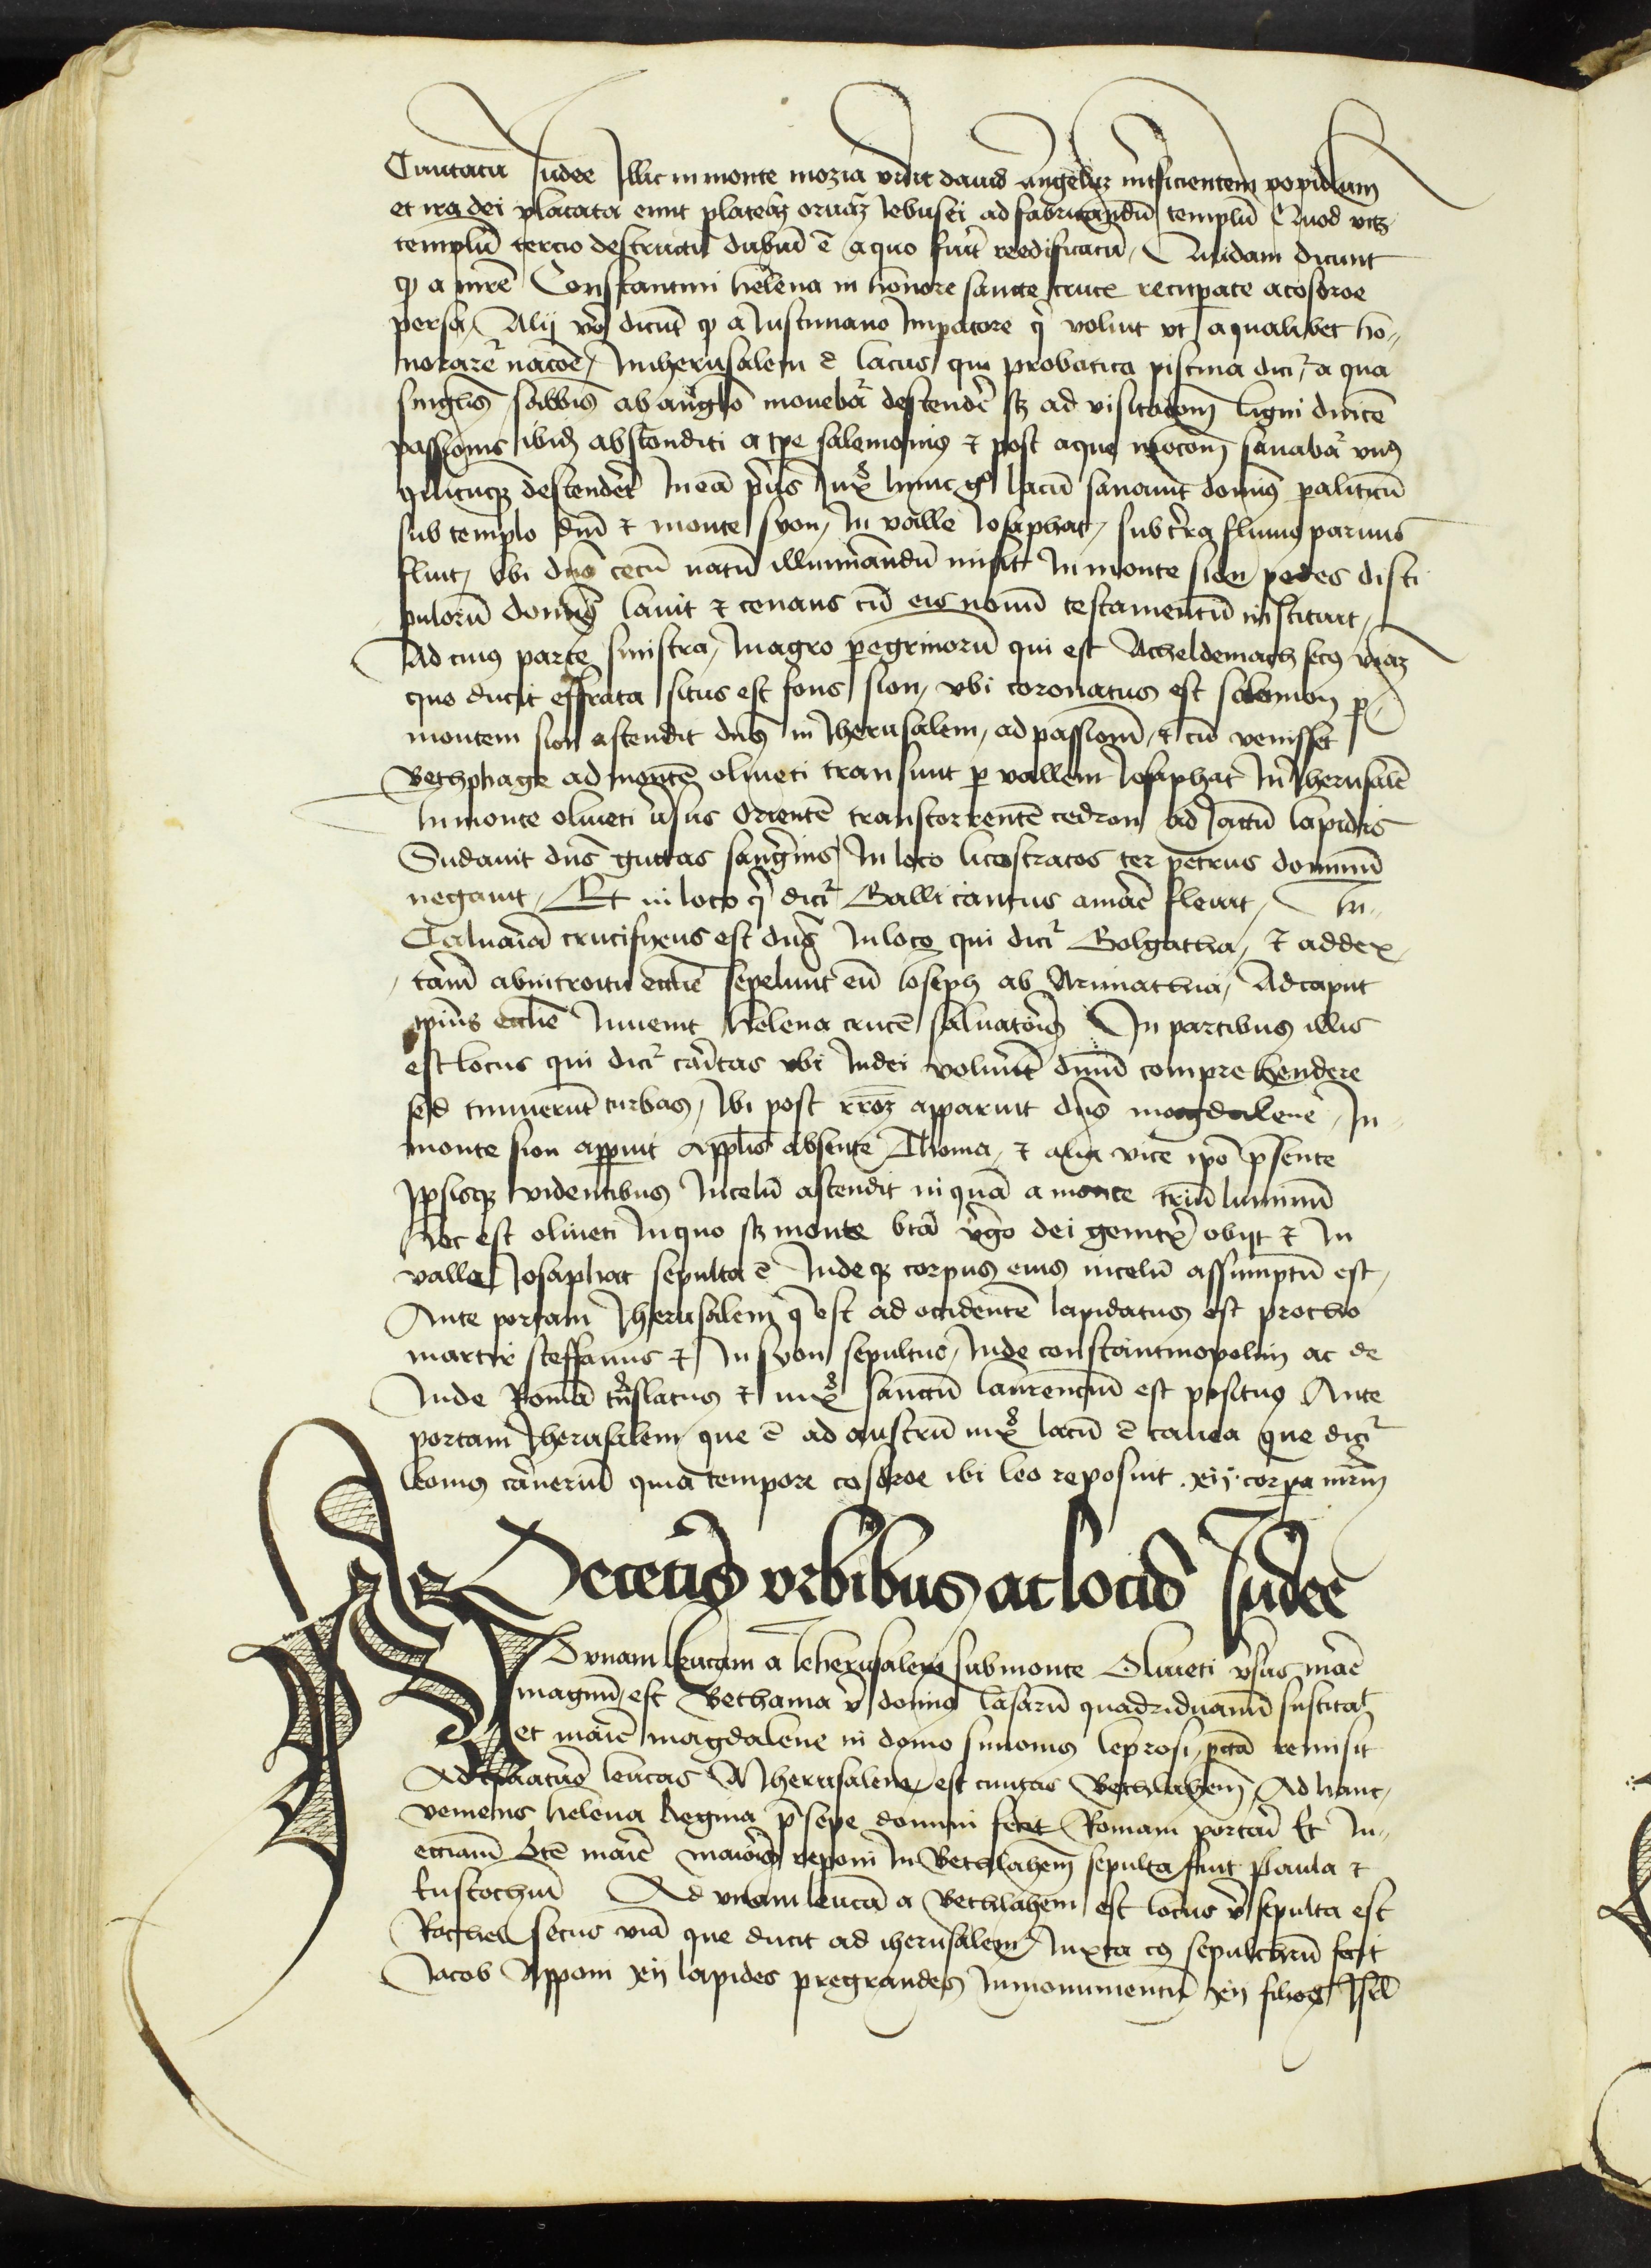 Ciuitatū Iudee Illic in monte moria vidit dauid angelūz int̄ficientem populum
et ira dei placata emit plateāz ornāz Iebusei ad fabricandū templū Quod vtz
templū tercio destructū dubiū ē a quo fuit̄ reedificatū, Quidam dicunt
ꝙ a mr̄e Constantini helena in honore sancte cruce recuꝑate a cosdroe
persa, Alij vō dicūt ꝙ a Iustiniano Imꝑatore q̄ voluit vt a qualibet ho„
norarēt nacōe, In iherusalem ē lacus qui probatica piscina dicit̄, a qua
singlis̄ sabbis̄ ab anglo mouebat̄ descendēs sz ad visitacōm ligni dn̄ice
passionis ibidꝫ absconditi a tꝑe salemonis ⁊ post aque mocōm sanabat̄ vnꝰ
quicūqz descendērt In eā prius Iux̄ hunc gͦ lacū sanauit domins paliticū
sub templo dn̄i ⁊ monte syon, In valle Iosaphat, subtr̄ra fluuiꝰ paruus
fluit, vbi dn̄s cecū natū illuminandū misit In monte sion pedes disci
pulorū dominꝰ lauit ⁊ cenans cū eis nouū testamentū instituit,
Ad cuiꝰ parte sinistra, In agro ꝑegrinorū qui est Acheldemach secꝰ viaz
que ducit effrata situs est fons sion, vbi coronatus est salomon ꝑ
montem sion ascendit dn̄s in Iherusalem, ad passionē, ⁊ cū venisset
Bethphage ad montē oliueti transiuit ꝑ vallem Iosaphat In Iherusalē
In monte oliueti v̄sus Orientē trans torrentē cedron ad iactū lapidis
Sudauit dn̄s guttas sanguinis In loco licostratos ter petrus dominū
negauit, Et in loco q̄ dicit̄ Gallicantus amare fleuit, In„
Caluaria crucifixus est dn̄s In loco qui dicit̄ Golgatha, ⁊ ad dex„
teram ab introitu ecclie sepeliuit eū Ioseph ab Arimathia, Ad caput
ipius ecclie Inuenit helena crucē saluatoris In partibus illis
est locus qui dicit̄ caritas vbi Iudei voluert̄ dn̄m comprehendere
sed timuerūt turbas, Ibi post rr̄oꝫ apparuit dn̄s magdalene, In„
monte sion apꝑuit apptis absente Thoma, ⁊ alia vice ipō p̄sente
Ipsisqz videntibus In celū ascendit in quā a monte triū luminū
hoc est oliueti In quo sz monte bta v̄go dei genitx̄ obijt ⁊ In
valle Iosaphat sepulta ē Indeqz corpus eius in celū assumptū est,
Ante portam Iherusalem q̄ est ad occidentē lapidatus est protho
martir steffanus ⁊ In syon sepultus, Inde constantinopolim ac de
Inde Romā tn̄slatus ⁊ iux̄ sanctū laurenciū est positus Ante
portam Iherusalem que ē ad austrū iux̄ lacū ē cauea que dicit̄
leonis carnerū quia tempore cosdroe ibi leo reposuit .xij. corꝑa mr̄m
De ceteris vrbibus ac locis Iudee
AD vnam leucam a Ieherusalem sub monte Oliueti v̄sus mare
magnū est Bethania v̄ dominꝰ lasarū quadriduanū suscitat̄
et marie magdalene in domo simonis leprosi, pctā remisit
Ad quatuor leucas A Iherusalem, est ciuitas Bethlahem, Ad hanc,
veniens helena Regina p̄sepe domini fecit Romam portari Et In„
ecciam bte marie maioris reponi In Bethlahem sepulta fuit Paula ⁊
Eustochiū Ad vnam leucā a Bethlahem est locus v̄ sepulta est
Rachel secus viā que ducit ad iherusalem Iuxta cꝰ sepulchrū fecit
Iacob Apponi xij lapides pregrandes In monumentū xij filioꝝ Isrl̄